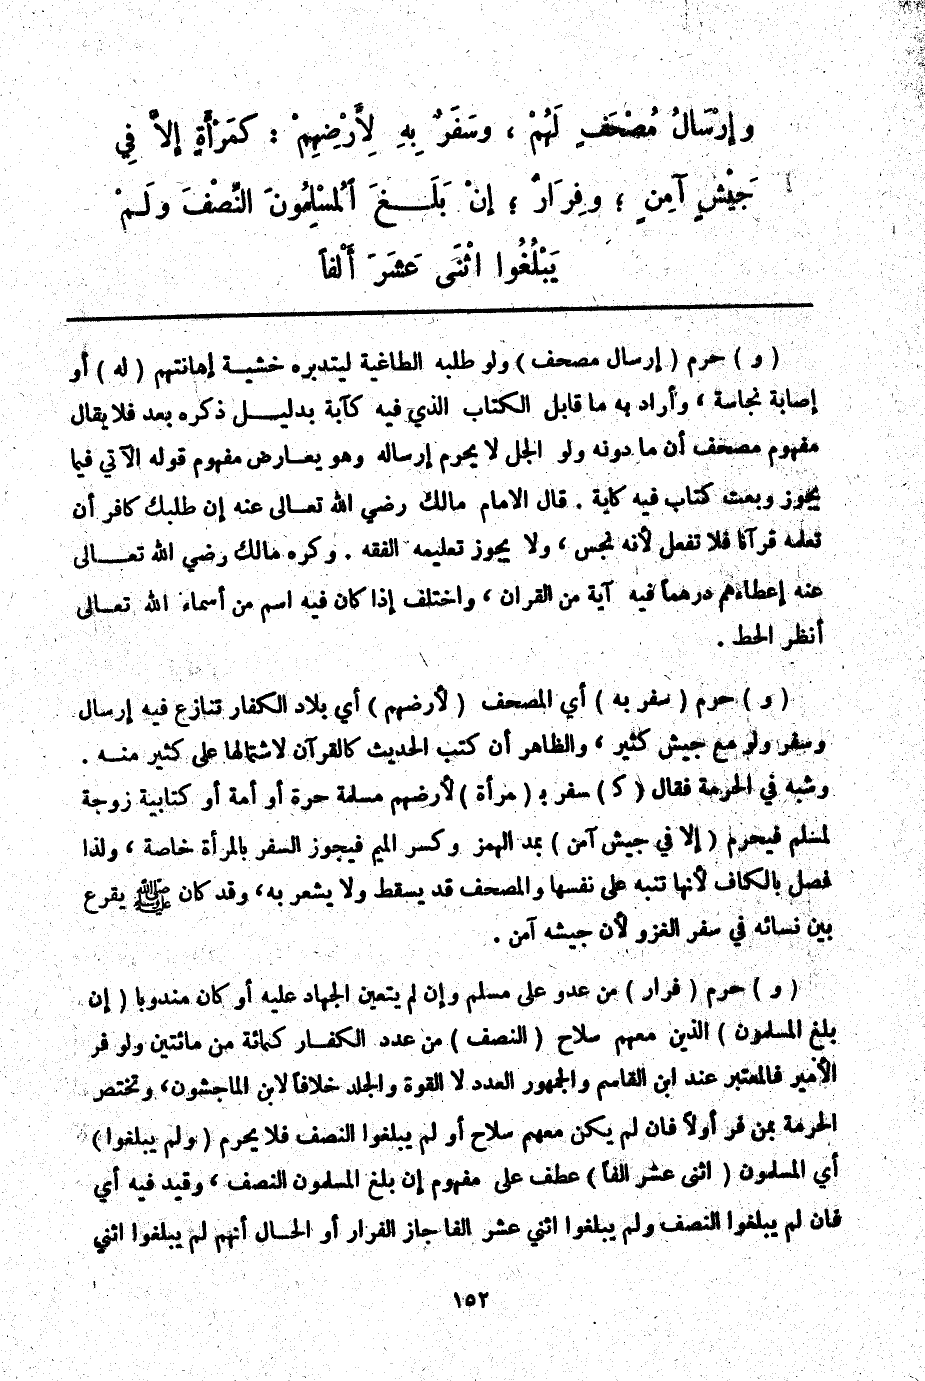 وإِرْسَالُ مُصْحَفٍ لَهُمْ ، وسَفَرٌ بِهِ لِأَرْضِهِمْ : كَمَرْأَةٍ إِلاَّ فِي
جَيْشٍ آمِنٍ ؛ وفِرَارٌ ؛ إِنْ بَلَـــغَ اَلْمسْلِمُونَ النِّصْفَ ولَـمْ
يَبْلُغُوا اثْنَى عَشَرَ أَلْفاً
( و ) حرم ( إرسال مصحف ) ولو طلبه الطاغية ليتدبره خشيــة إهانتهم ( له ) أو
إصابة نجاسة ، وأراد به ما قابل الكتاب الذي فيه كآية بدليــــل ذكره بعد فلا يقال
مفهوم مصحف أن ما دونه ولو الجل لا يحرم إرساله وهو يعــارض مفهوم قوله الآتي فيما
يجوز وبعث كتاب فيه كاية . قال الامام مالك رضي الله تعــالى عنه إن طلبك كافر أن
تعلمه قرآنا فلا تفعل لأنه نجس ، ولا يجوز تعليمه الفقه . وكره مالك رضي الله تعـــــالى
عنه إعطاءهم درهماً فيه آية من القران ، واختلف إذا كان فيه اسم من أسماء الله تعــالى
أنظر الحط .
( و ) حرم ( سفر به ) أي المصحف ( لأرضهم ) أي بلاد الكفار تنازع فيه إرسال
وسفر ولو مع جيش كثير ، والظاهر أن كتب الحديث كالقرآن لاشتمالها على كثير منــه .
وشبه في الحرمة فقال ( كـ ) سفر بـ ( مرأة ) لأرضهم مسلمة حرة أو أمة أو كتابية زوجة
لمسلم فيحرم ( إلا في جيش آمن ) بمد الهمز وكسر الميم فيجوز السفر بالمرأة خاصة ، ولذا
فصل بالكاف لأنها تنبه على نفسها والمصحف قد يسقط ولا يشعر به، وقد كان ﷺ يقرع
بين نسائه في سفر الغزو لأن جيشه آمن .
( و ) حرم ( فرار ) من عدو على مسلم وإن لم يتعين الجهاد عليه أو كان مندوبا ( إن
بلغ المسلمون ) الذين معهم سلاح ( النصف ) من عدد الكفــار كمائة من مائتين ولو فر
الأمير فالمعتبر عند ابن القاسم والجمهور العدد لا القوة والجلد خلافاً لابن الماجشون، وتختص
الحرمة بمن فر أولاً فان لم يكن معهم سلاح أو لم يبلغوا النصف فلا يحرم ( ولم يبلغوا )
أي المسلمون ( اثنى عشر الفاً ) عطف على مفهوم إن بلغ المسلمون النصف ، وقيد فيه أي
فان لم يبلغوا النصف ولم يبلغوا اثني عشر الفا جاز الفرار أو الحــال أنهم لم يبلغوا اثني
١٥٢